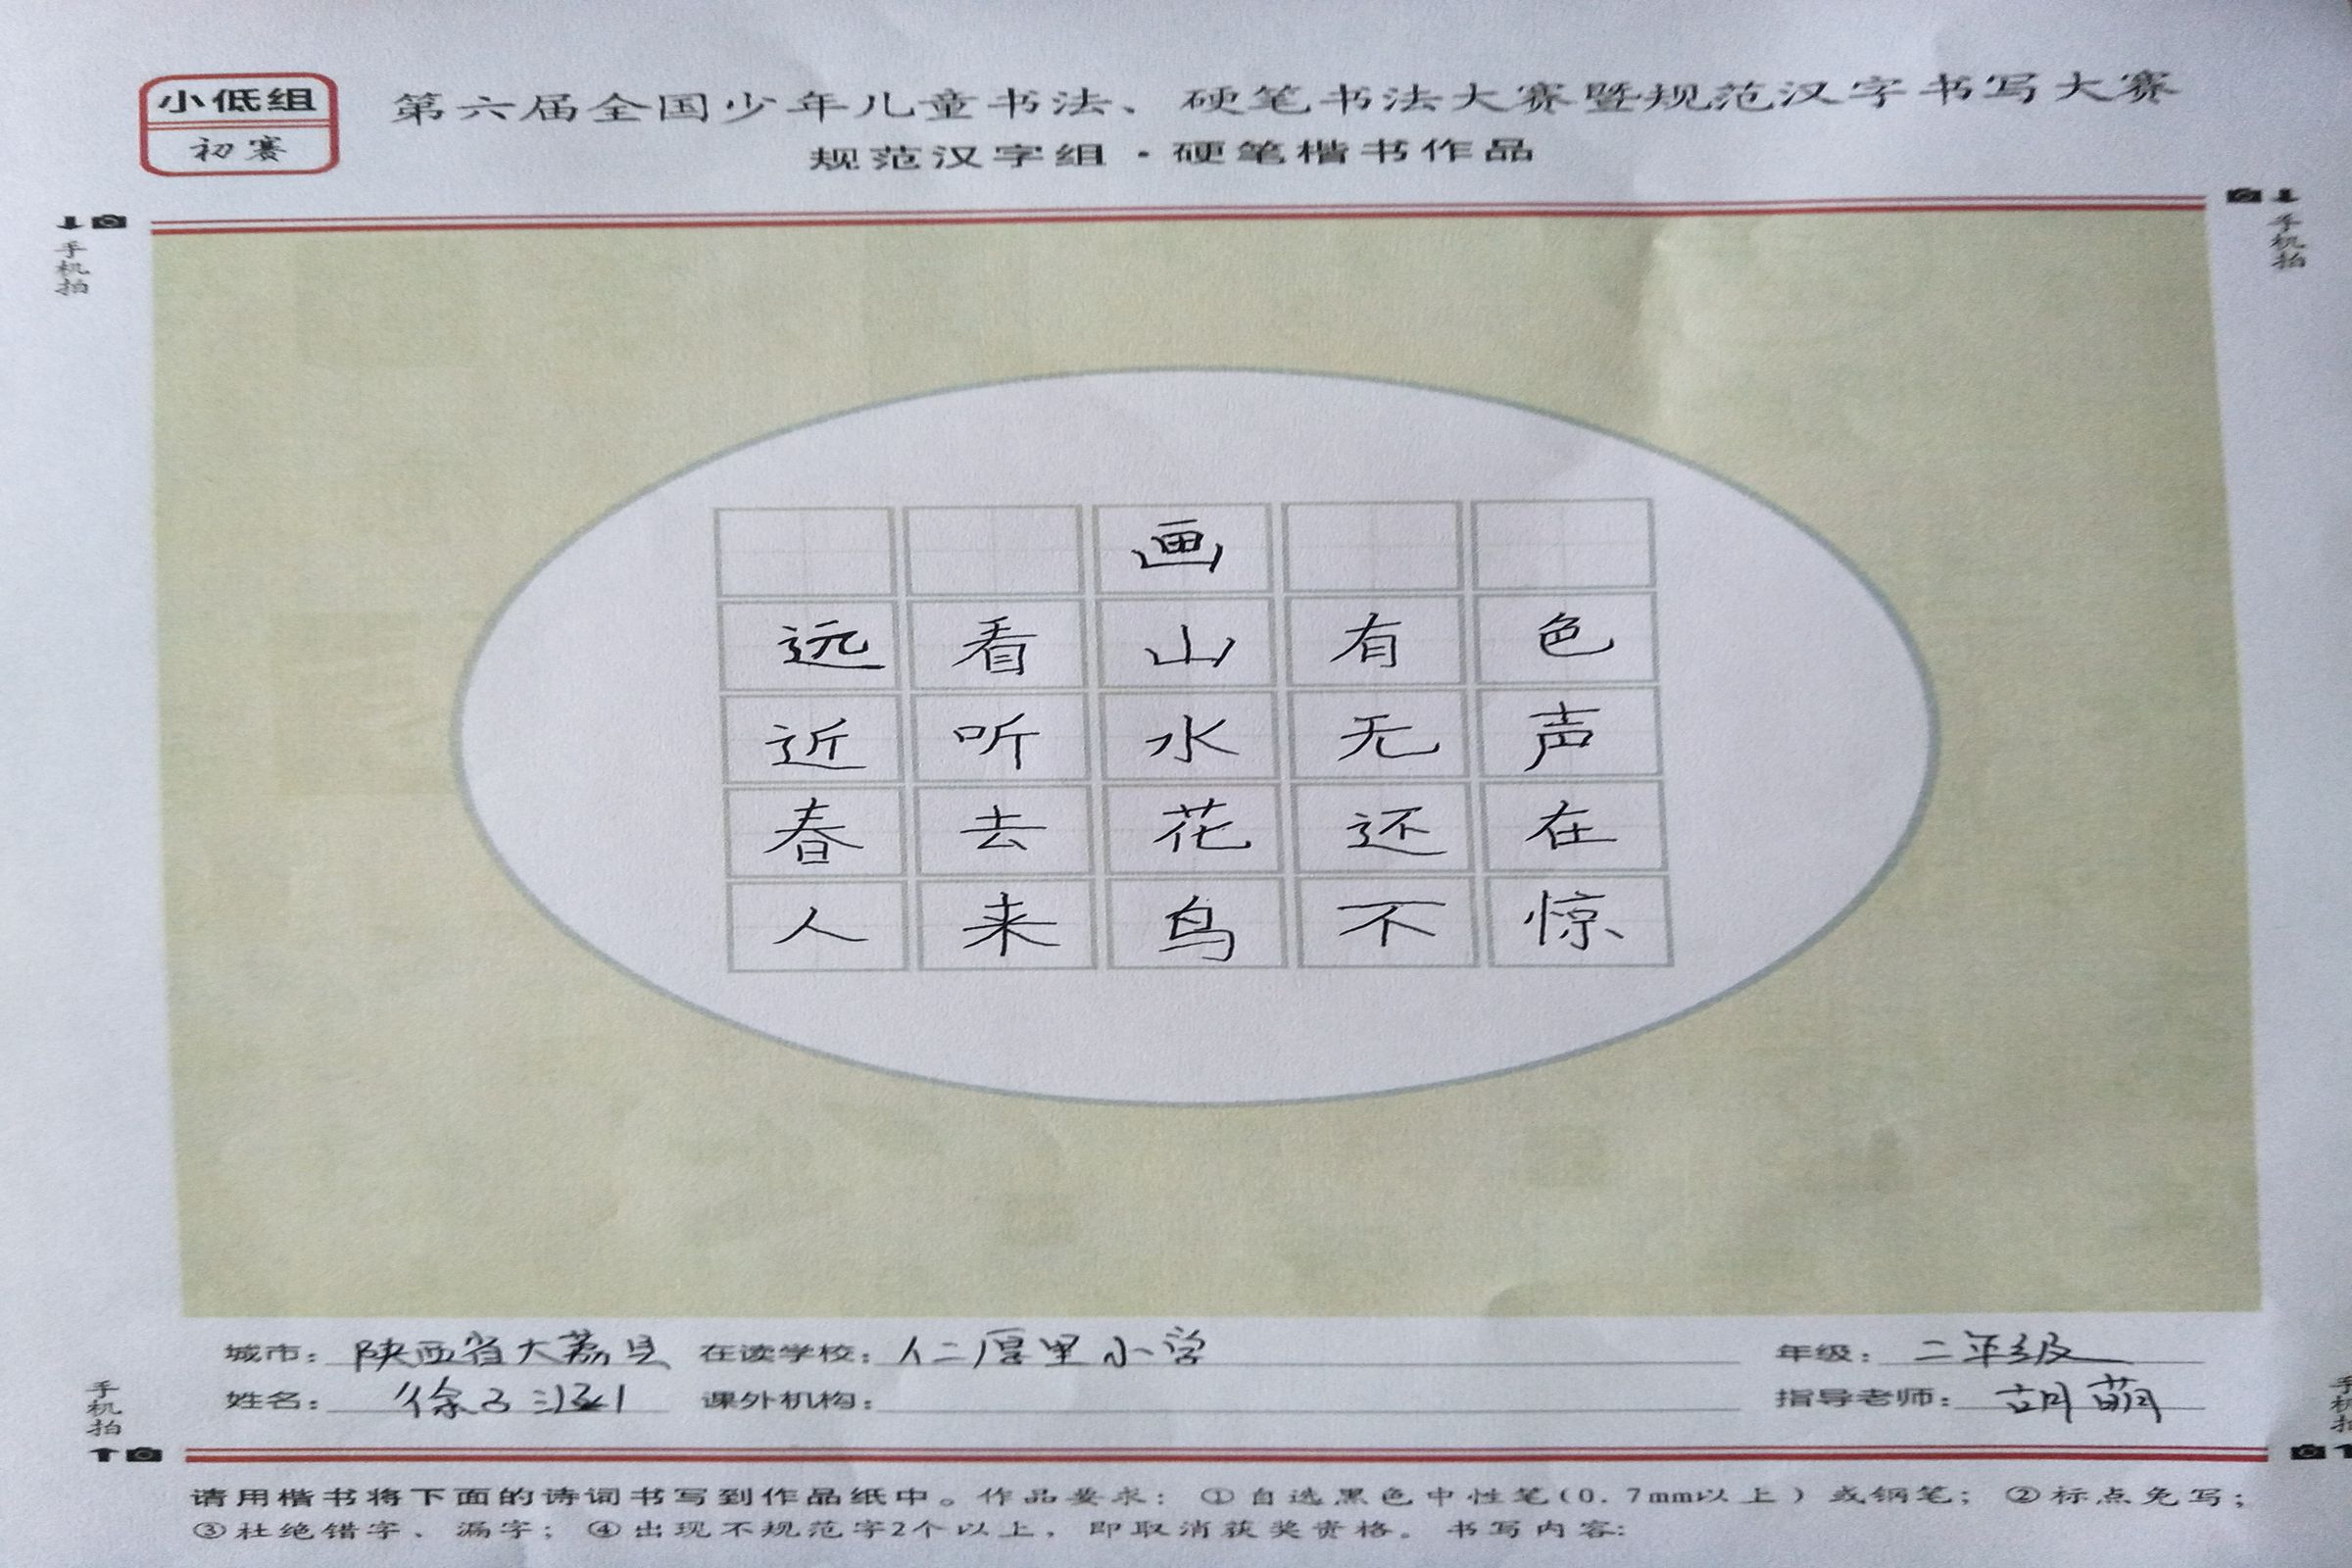 小低组
初赛
第六届全国少年儿童书法、硬笔书法大赛暨规范汉字书写大赛
规范汉字组·硬笔楷书作品
手机拍
手机拍
画
远看山有色
近听水无声
春去花还在
人来鸟不惊
城市：陕西省大荔县 在读学校：仁厚里小学 年级：二年级
姓名：徐 课外机构： 指导老师：胡萌
手机拍
手机拍
请用楷书将下面的诗词书写到作品纸中。作品要求：①自选黑色中性笔(0.7mm以上)或钢笔；②标点免写；
③杜绝错字、漏字；④出现不规范字2个以上，即取消获奖资格。书写内容：